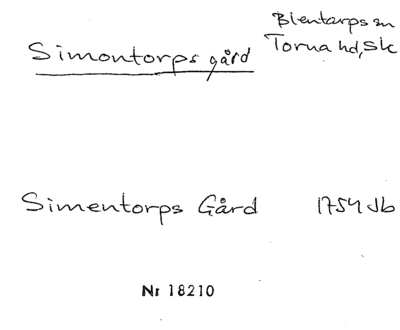 Simontorps gård
Blentarps sn
Torna hd, Sk
Simentorps Gård 1754 Jb
Nr 18210